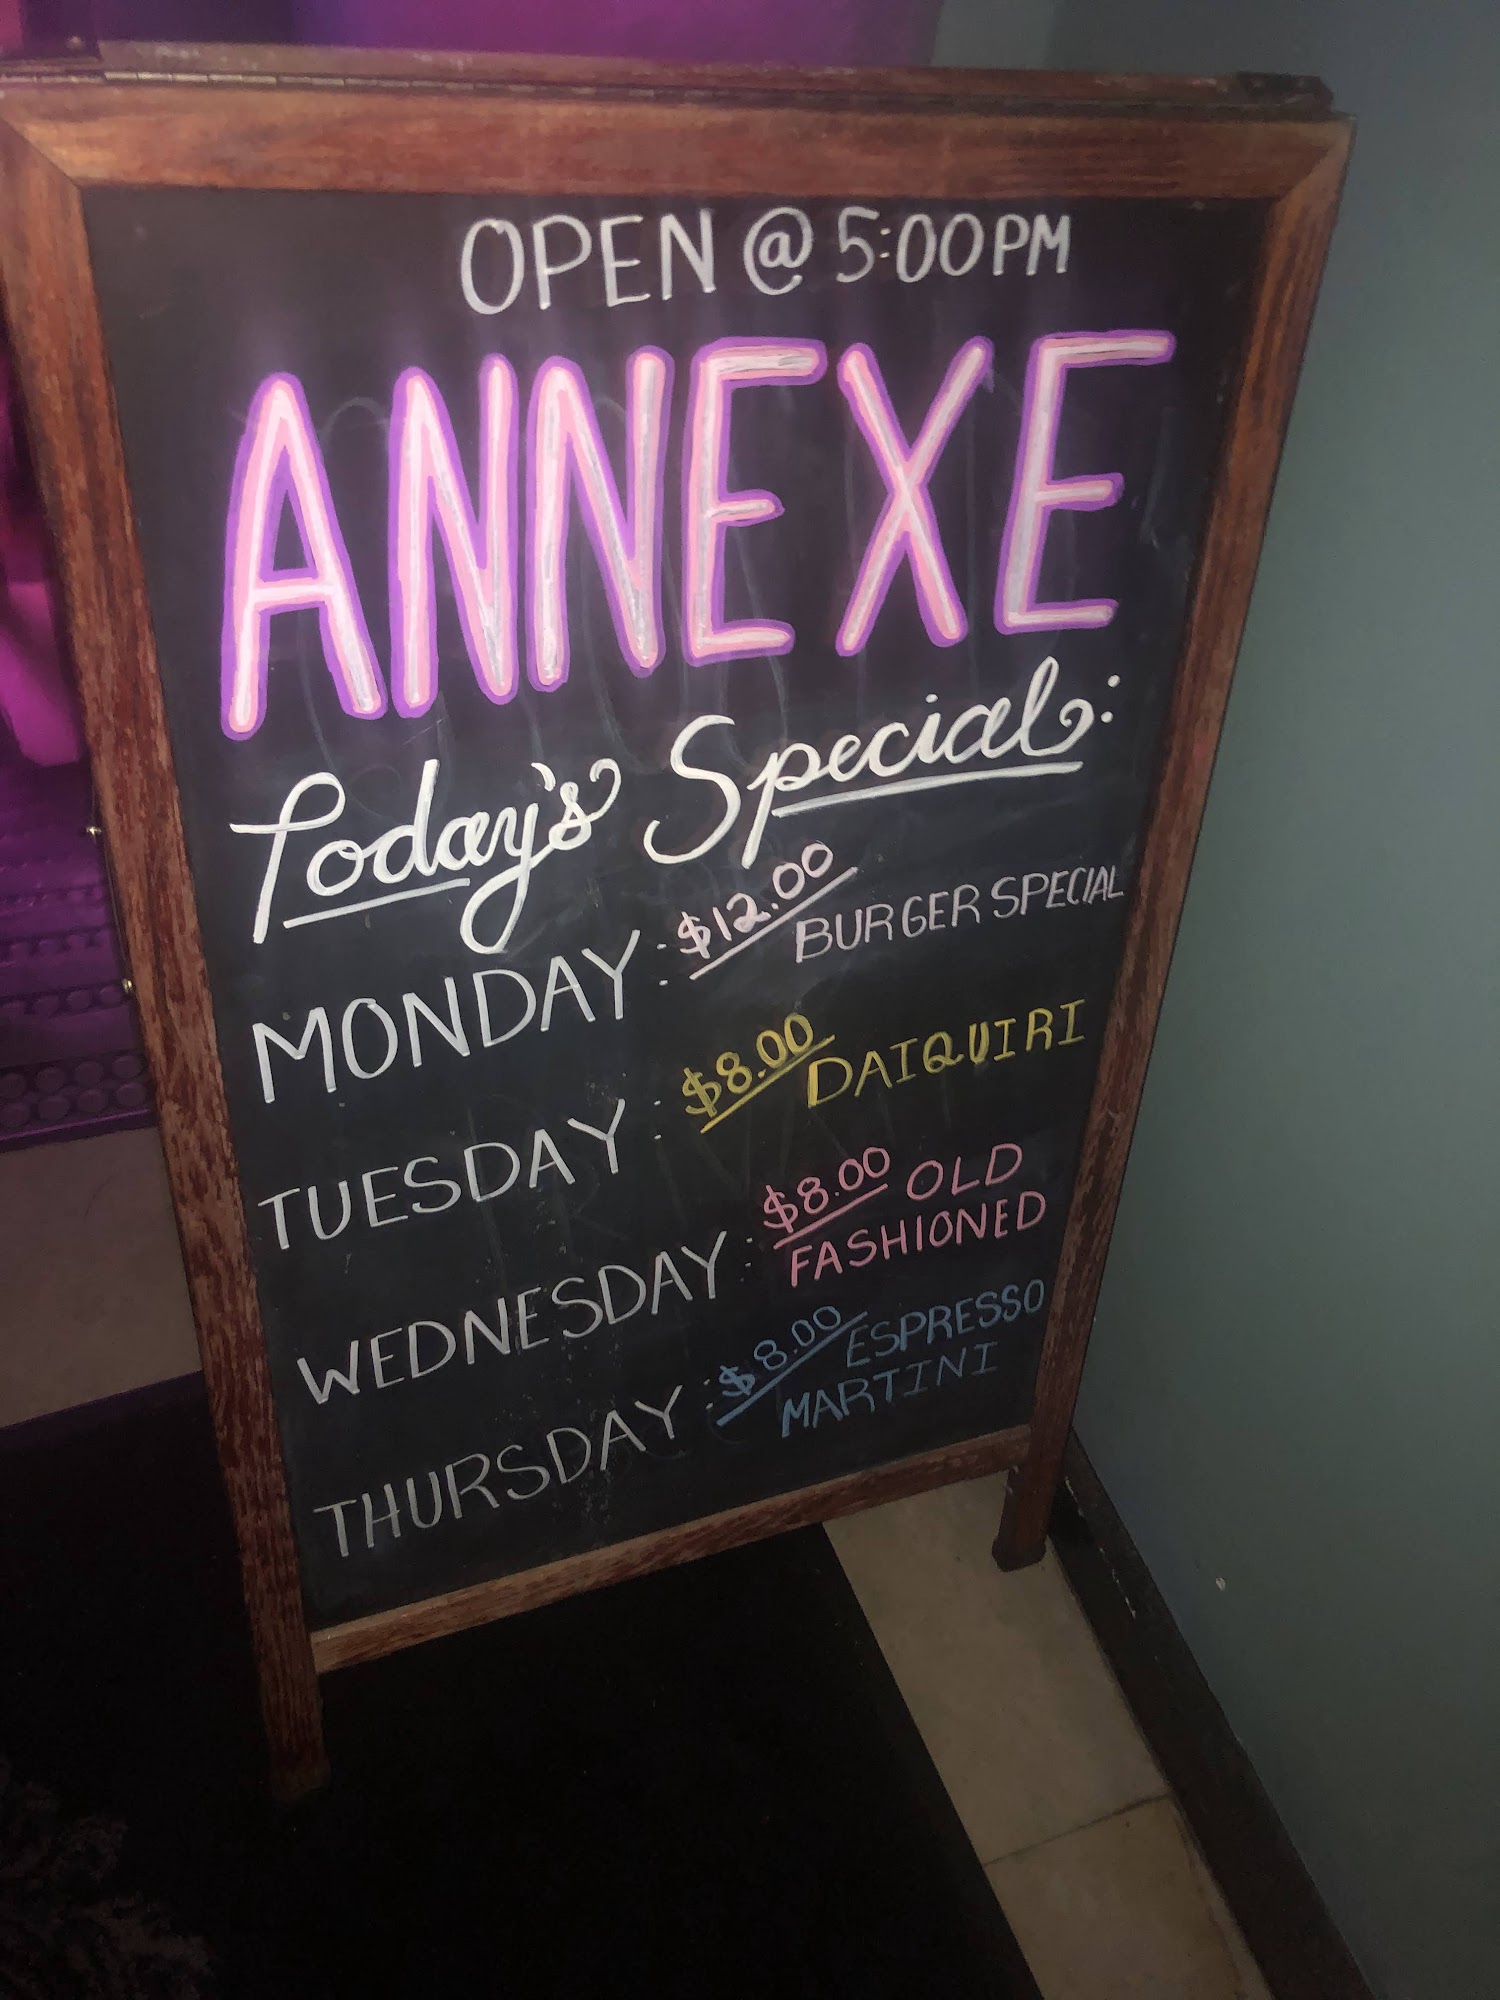 OPEN @ 5:00PM
ANNEXE
Today's Special:
MONDAY: $12.00 BURGER SPECIAL
TUESDAY: $8.00 DAIQUIRI
WEDNESDAY: $8.00 OLD
FASHIONED
THURSDAY: $8.00 ESPRESSO
MARTINI